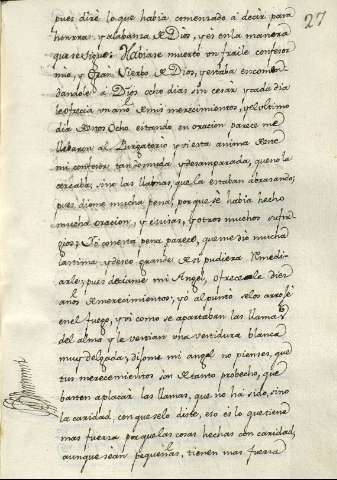 27
pues diré lo que habia comensado a decir para
honrra y alabanza de Dios, y es en la manera
que se sigue. Habiase muerto un fraile confesor
mio, y Gran Siervo de Dios, y estaba encomen
dandole a Dios ocho dias sin cesar y cada dia
le ofrecia un año de mis merecimientos, y el ultimo
dia de estos Ocho estando en oracion parece me
llebaron al Purgatorio y vi esta anima de este
mi confesor tan desnuda y desamparada, que no la
cercaba, sino las llamas, que la estaban abrasando;
pues diome mucha pena, porque se habia hecho
mucha oracion, y misas, y otros muchos sufra
gios; Yo con esta pena parece, que me dio mucha
lastima y deseo grande de si pudiera Remedi
arle, pues deciame mi Angel, ofrecele diez
años de merecimientos; yo al punto se los arroje
en el fuego, y vi como se apartaban las llamas
del alma y le vestian una vestidura blanca
muy delgada; dijome mi angel no pienses, que
tus merecimientos son de tanto probecho, que
basten aplacar las llamas, que no ha sido, sino
la caridad, con que se lo diste, eso es lo que tiene
mas fuersa porque las cosas hechas con caridad,
aunque sean pequeñas, tienen mas fuersa